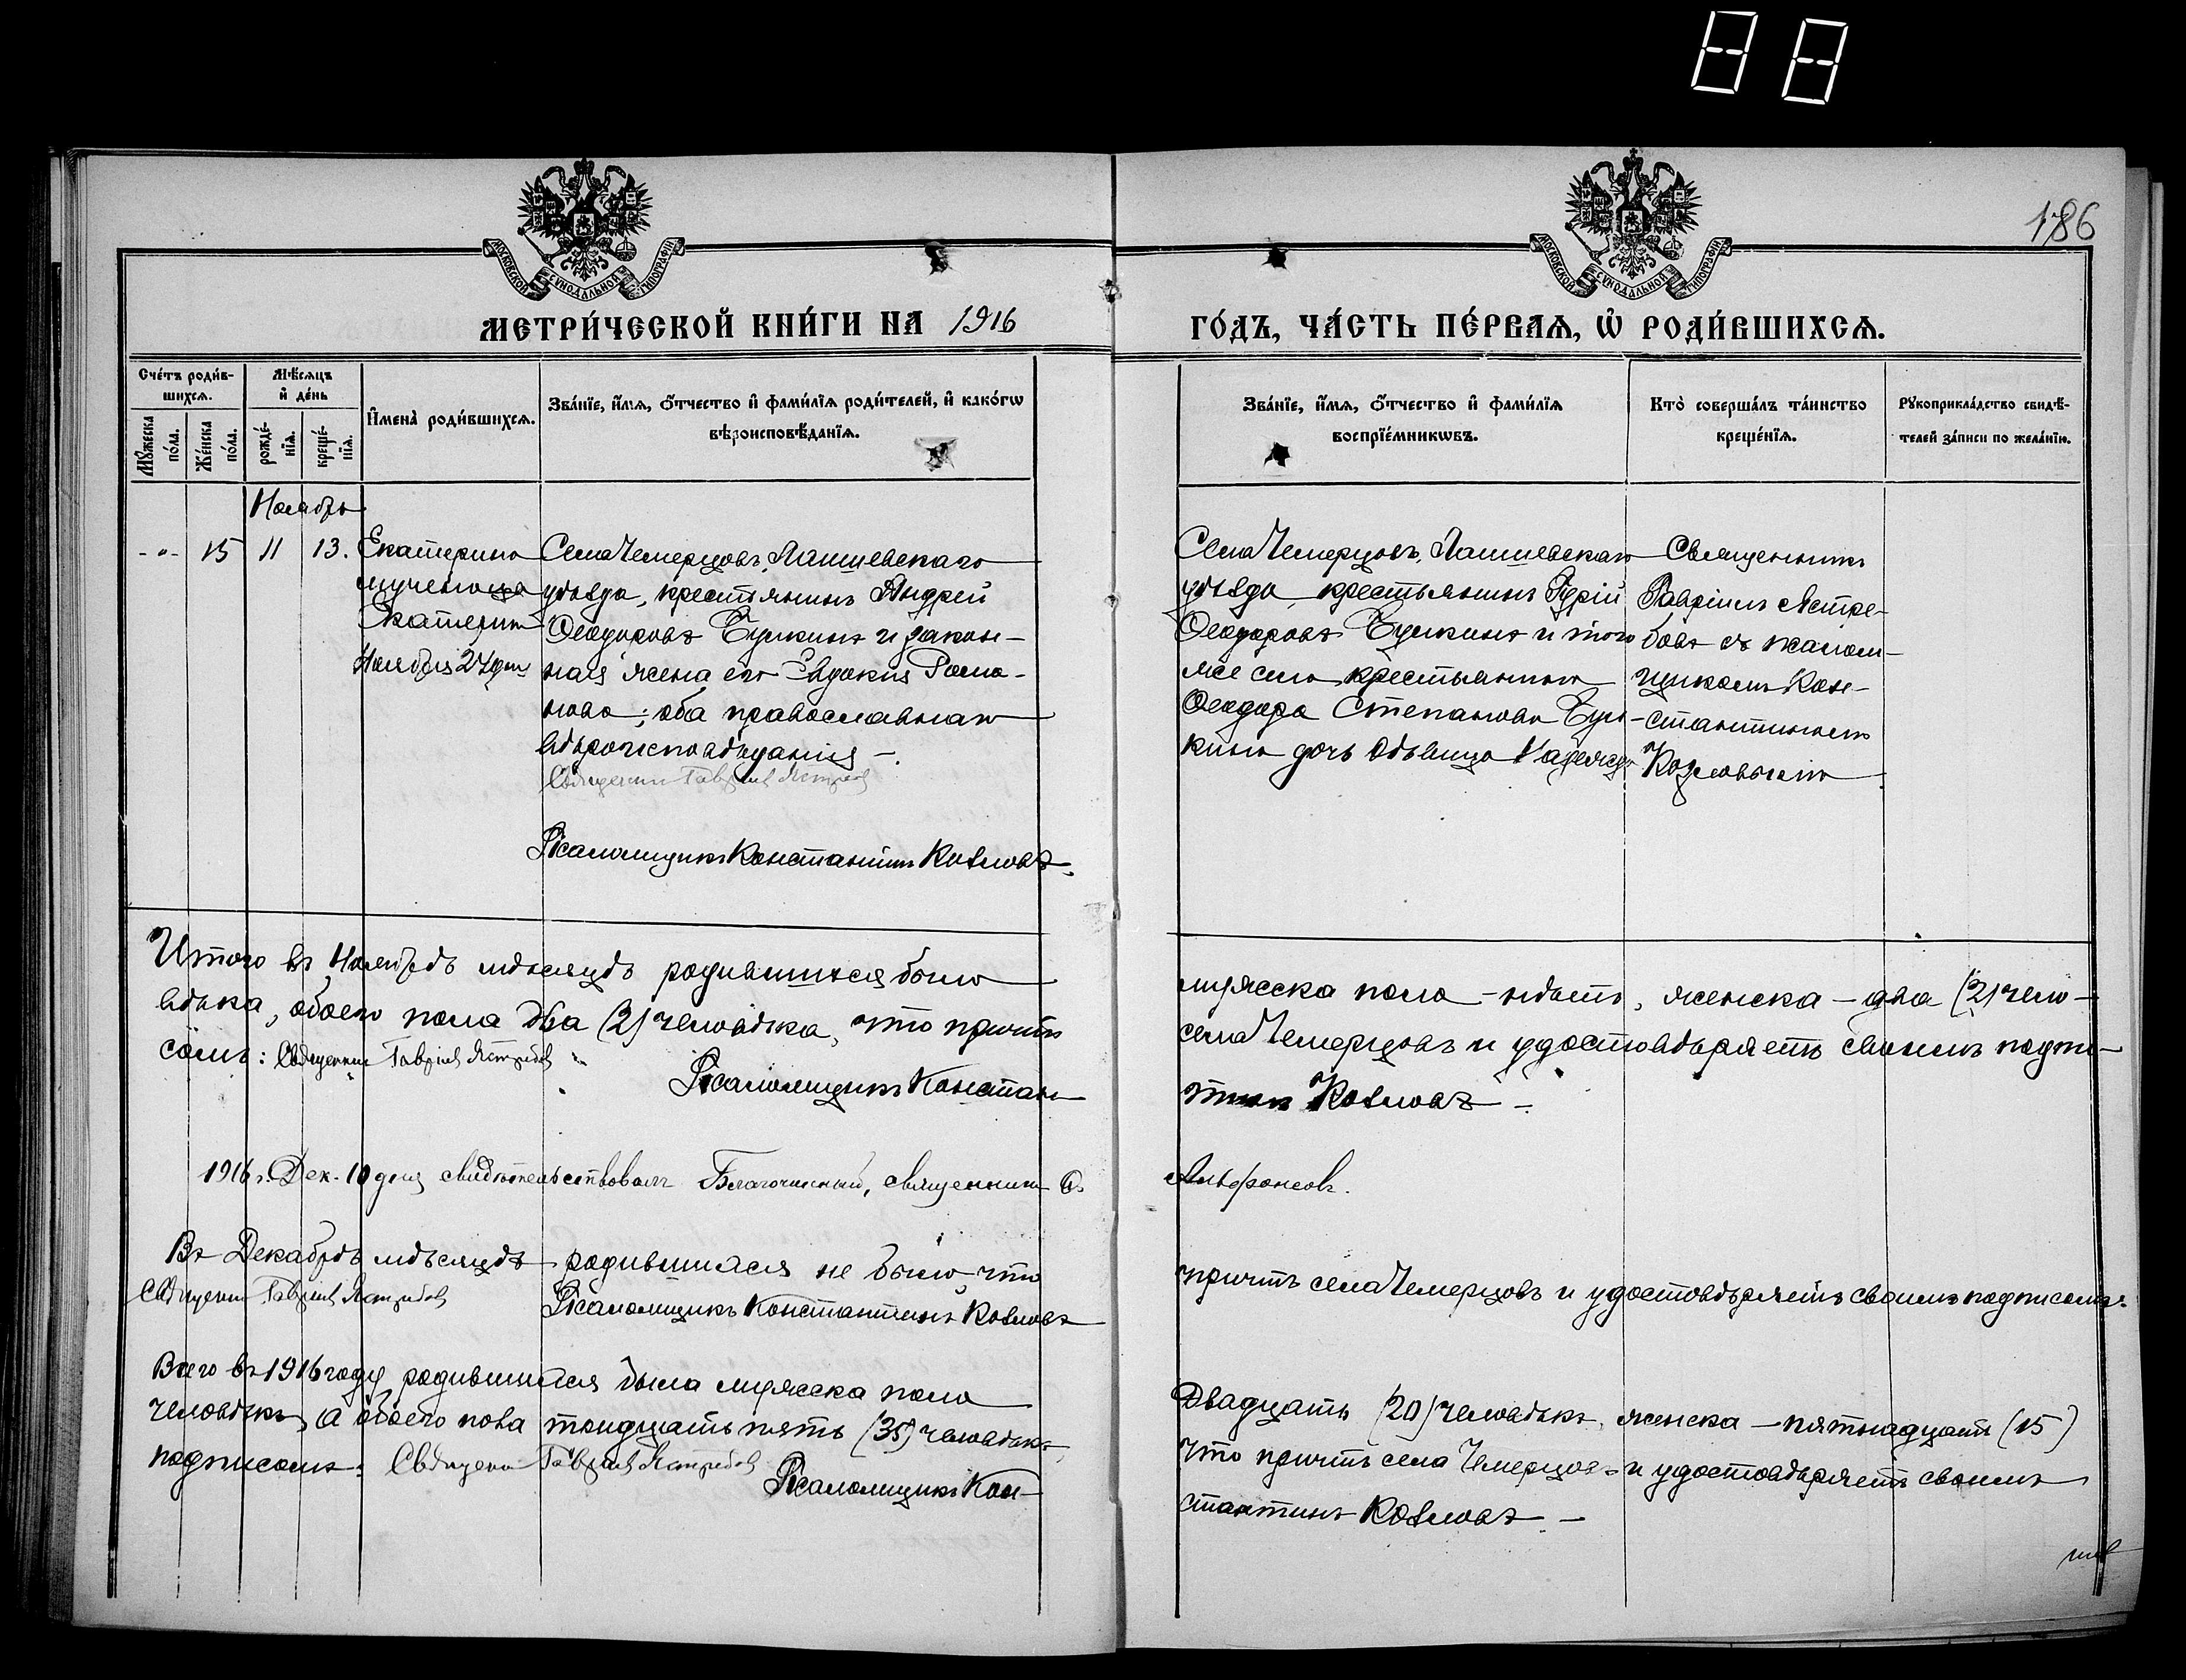 186
МОСКОВСКОЙ СѴНОДАЛЬНОЙ ТИПОГРАФІИ
МОСКОВСКОЙ СѴНОДАЛЬНОЙ ТИПОГРАФІИ
МЕТРИ́ЧЕСКОЙ КНИ́ГИ НА 1916
ГО́ДЪ, ЧА́СТЬ ПЕ́РВАѦ, Ѡ҆ РОДИ́ВШИХСѦ.
Сче́тъ роди́в-
шихсѧ.
Мꙋ́жеска по́ла.
Же́нска по́ла.
Мѣ́сѧцъ
и҆ де́нь
рожде́-
нїѧ.
креще́-
нїѧ.
И҆мена̀ роди́вшихсѧ.
Зва́нїе, и҆́мѧ, ѻ҆́тчество и҆ фами́лїѧ роди́телей, и҆ како́гѡ
вѣроисповѣ́данїѧ.
Зва́нїе, и҆́мѧ, ѻ҆́тчество и҆ фами́лїѧ
воспрїе́мникѡвъ.
Кто̀ соверша́лъ та́инство
креще́нїѧ.
Рꙋкоприкла́дство свидѣ́-
телей за́писи по жела́нїю.
Ноябрь
-"- 15 11 13.
Екатерина
мученица
Екатерин
Ноября 24 дня
Села Чемерцовъ, Лаишевскаго
уѣзда, крестьянинъ Андрей
Ѳеодоровъ Бушкинъ и закон-
ная жена его Евдокія Рома-
нова; оба православнаго
вѣроисповѣданія –.
Священник Гавріил Ястребов
Псаломщикъ Константинъ Козловъ.
Села Чемерцовъ, Лаишевскаго
уѣзда, крестьянинъ Гурій
Ѳеодоровъ Бушкинъ и того
же села крестьянина
Ѳеодора Степанова Буш-
кина дочь дѣвица Надежда
Священникъ
Гавріилъ Ястре-
бовъ съ псалом-
щикомъ Кон-
стантиномъ
Козловымъ
Итого въ Ноябрѣ мѣсяцѣ родившихся было
мужеска пола – нѣтъ, женска – два (2) чело-
вѣка, обоего пола два (2) человѣка, что причтъ
села Чемерцовъ и удостовѣряетъ своимъ подпи-
сомъ: Священник Гавріил Ястребов
Псаломщикъ Констан-
тинъ Козловъ –
1916 г. Дек. 10 дня свидѣтельствовалъ Благочинный, священникъ Ѳ.
Альфонсовъ.
Въ Декабрѣ мѣсяцѣ родившихся не было, что
причтъ села Чемерцовъ и удостовѣряетъ своимъ подписомъ:
Священник Гавріил Ястребов
Псаломщикъ Константинъ Козловъ
Всего въ 1916 году родившихся было мужеска пола
Двадцать (20) человѣкъ, женска – пятнадцать (15)
человѣкъ, а обоего пола тридцать пять (35) человѣкъ,
что причтъ села Чемерцовъ и удостовѣряетъ своимъ
подписомъ: Священник Гавріил Ястребов
Псаломщикъ Кон-
стантинъ Козловъ –